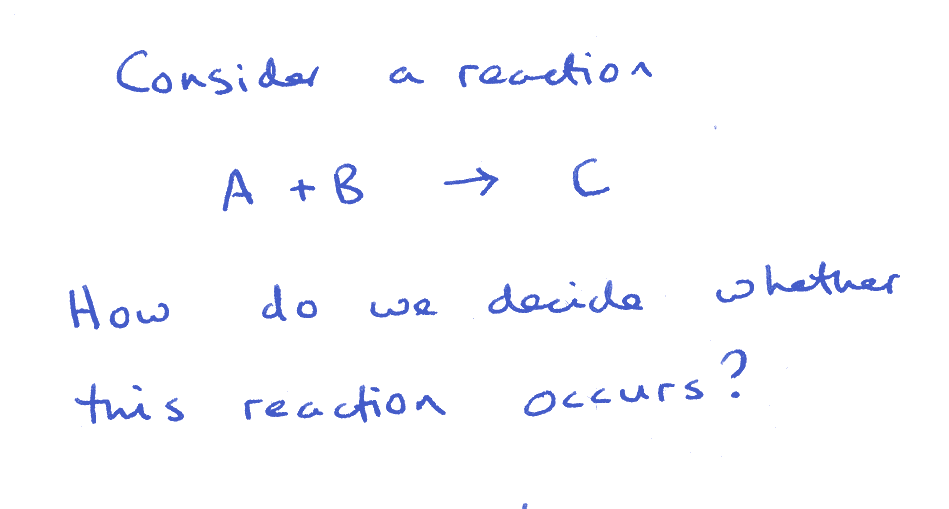 Consider a reaction
A + B → C
How do we decide whether
this reaction occurs?